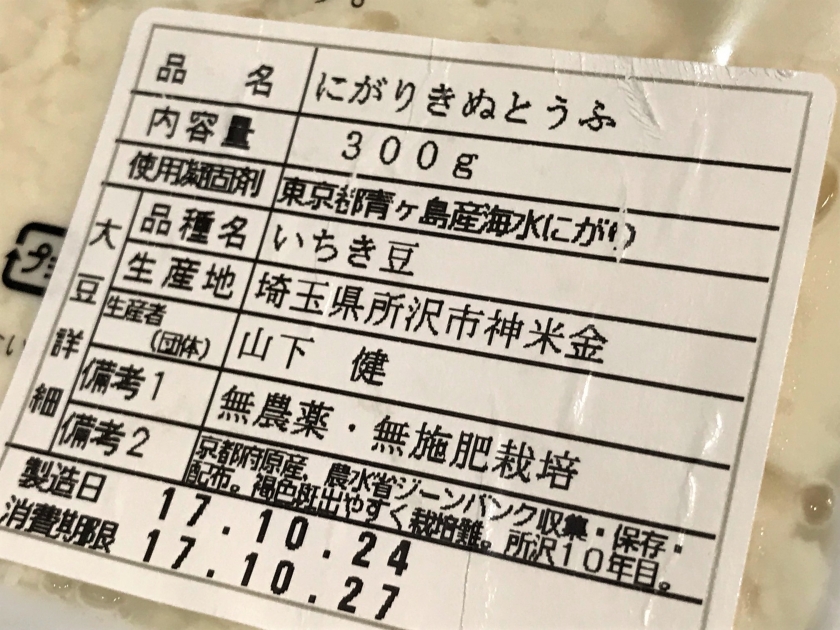 品名 にがりきぬとうふ
内容量 300g
使用凝固剤 東京都青ヶ島産海水にがり
大豆詳細
品種名 いちき豆
生産地 埼玉県所沢市神米金
生産者(団体) 山下 健
備考1 無農薬・無施肥栽培
備考2 京都府原産、農水省ジーンバンク収集・保存・
配布。褐色斑出やすく栽培難。所沢10年目。
製造日 17.10.24
消費期限 17.10.27
プラ